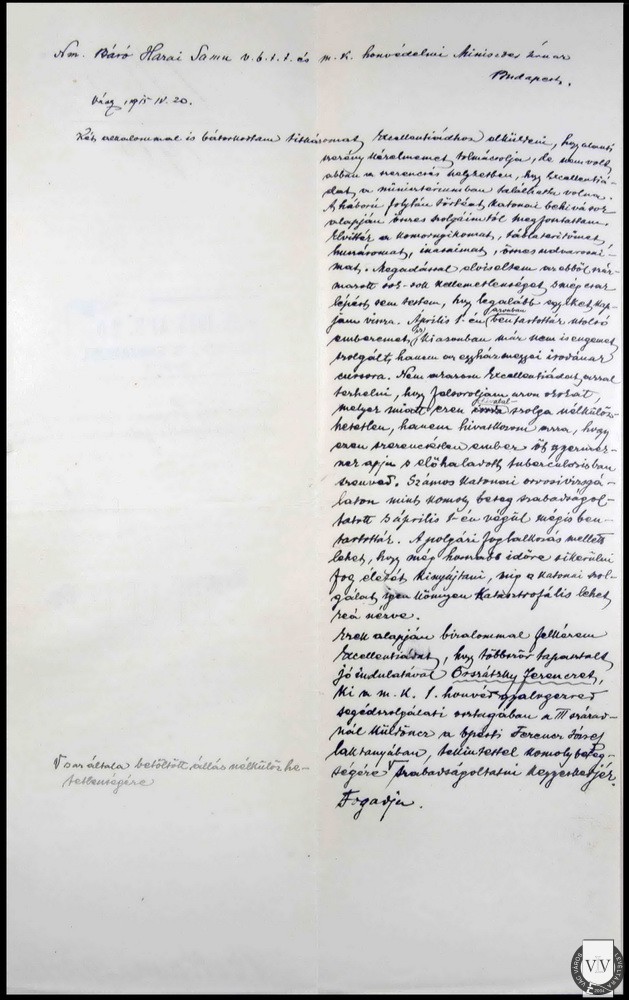 Nm. Báró Hazai Samu v.b.t.t. és m. k. honvédelmi Miniszter Úrnak
Budapest.
Vácz, 1915 IV. 20.
Két alkalommal is bátorkodtam titkáromat Excellentiádhoz elküldeni, hogy alanti
szerény kérelmemet tolmácsolja, de nem volt
abban a szerencsés helyzetben, hogy Excellentiá-
dat a miniszteriumban találhatta volna.
A háború folytán történt katonai behívások
alapján összes szolgáimtól megfosztattam.
Elvitték a komornyikomat,
huszáromat, inasaimat, összes udvarosai-
mat. Megadással elviseltem az ebből szár-
mazott sok-sok kellemetlenséget s még csak
lépést sem tettem, hogy legalább egyiket kap-
jam vissza. Április 1-én bentartották utolsó
emberemet, ki azonban már nem is engemet
szolgált, hanem az egyházmegyei irodának
cursora. Nem akarom Excellentiádat azzal
terhelni, hogy felsoroljam azon okokat,
melyek miatt ezen hivatal-
szolga nélkülöz-
hetetlen, hanem hivatkozom arra, hogy
ezen szerencsétlen ember öt gyermek-
nek apja s előhaladott tuberculosisban
szenved. Számos katonai orvosi vizsgá-
laton mint komoly beteg szabadságol-
tatott s április 1-én végül mégis ben-
tartották. A polgári foglalkozás mellett
lehet, hogy még hosszabb időre sikerülni
fog életét kinyújtani, míg a katonai szol-
gálat igen könnyen katasztrofális lehet
reá nézve.
Ezek alapján bizalommal felkérem
Excellentiádat, hogy többször tapasztalt
jóindulatával Ferenczet,
ki a m. k. 1. honvéd gyalogezred
segédszolgálati osztagában a III század-
nál küldöncz a bpesti Ferencz József
laktanyában, tekintettel komoly beteg-
ségére V szabadságoltatni kegyeskedjék.
Fogadja.
V s az általa betöltött állás nélkülözhe-
tetlenségére
VV